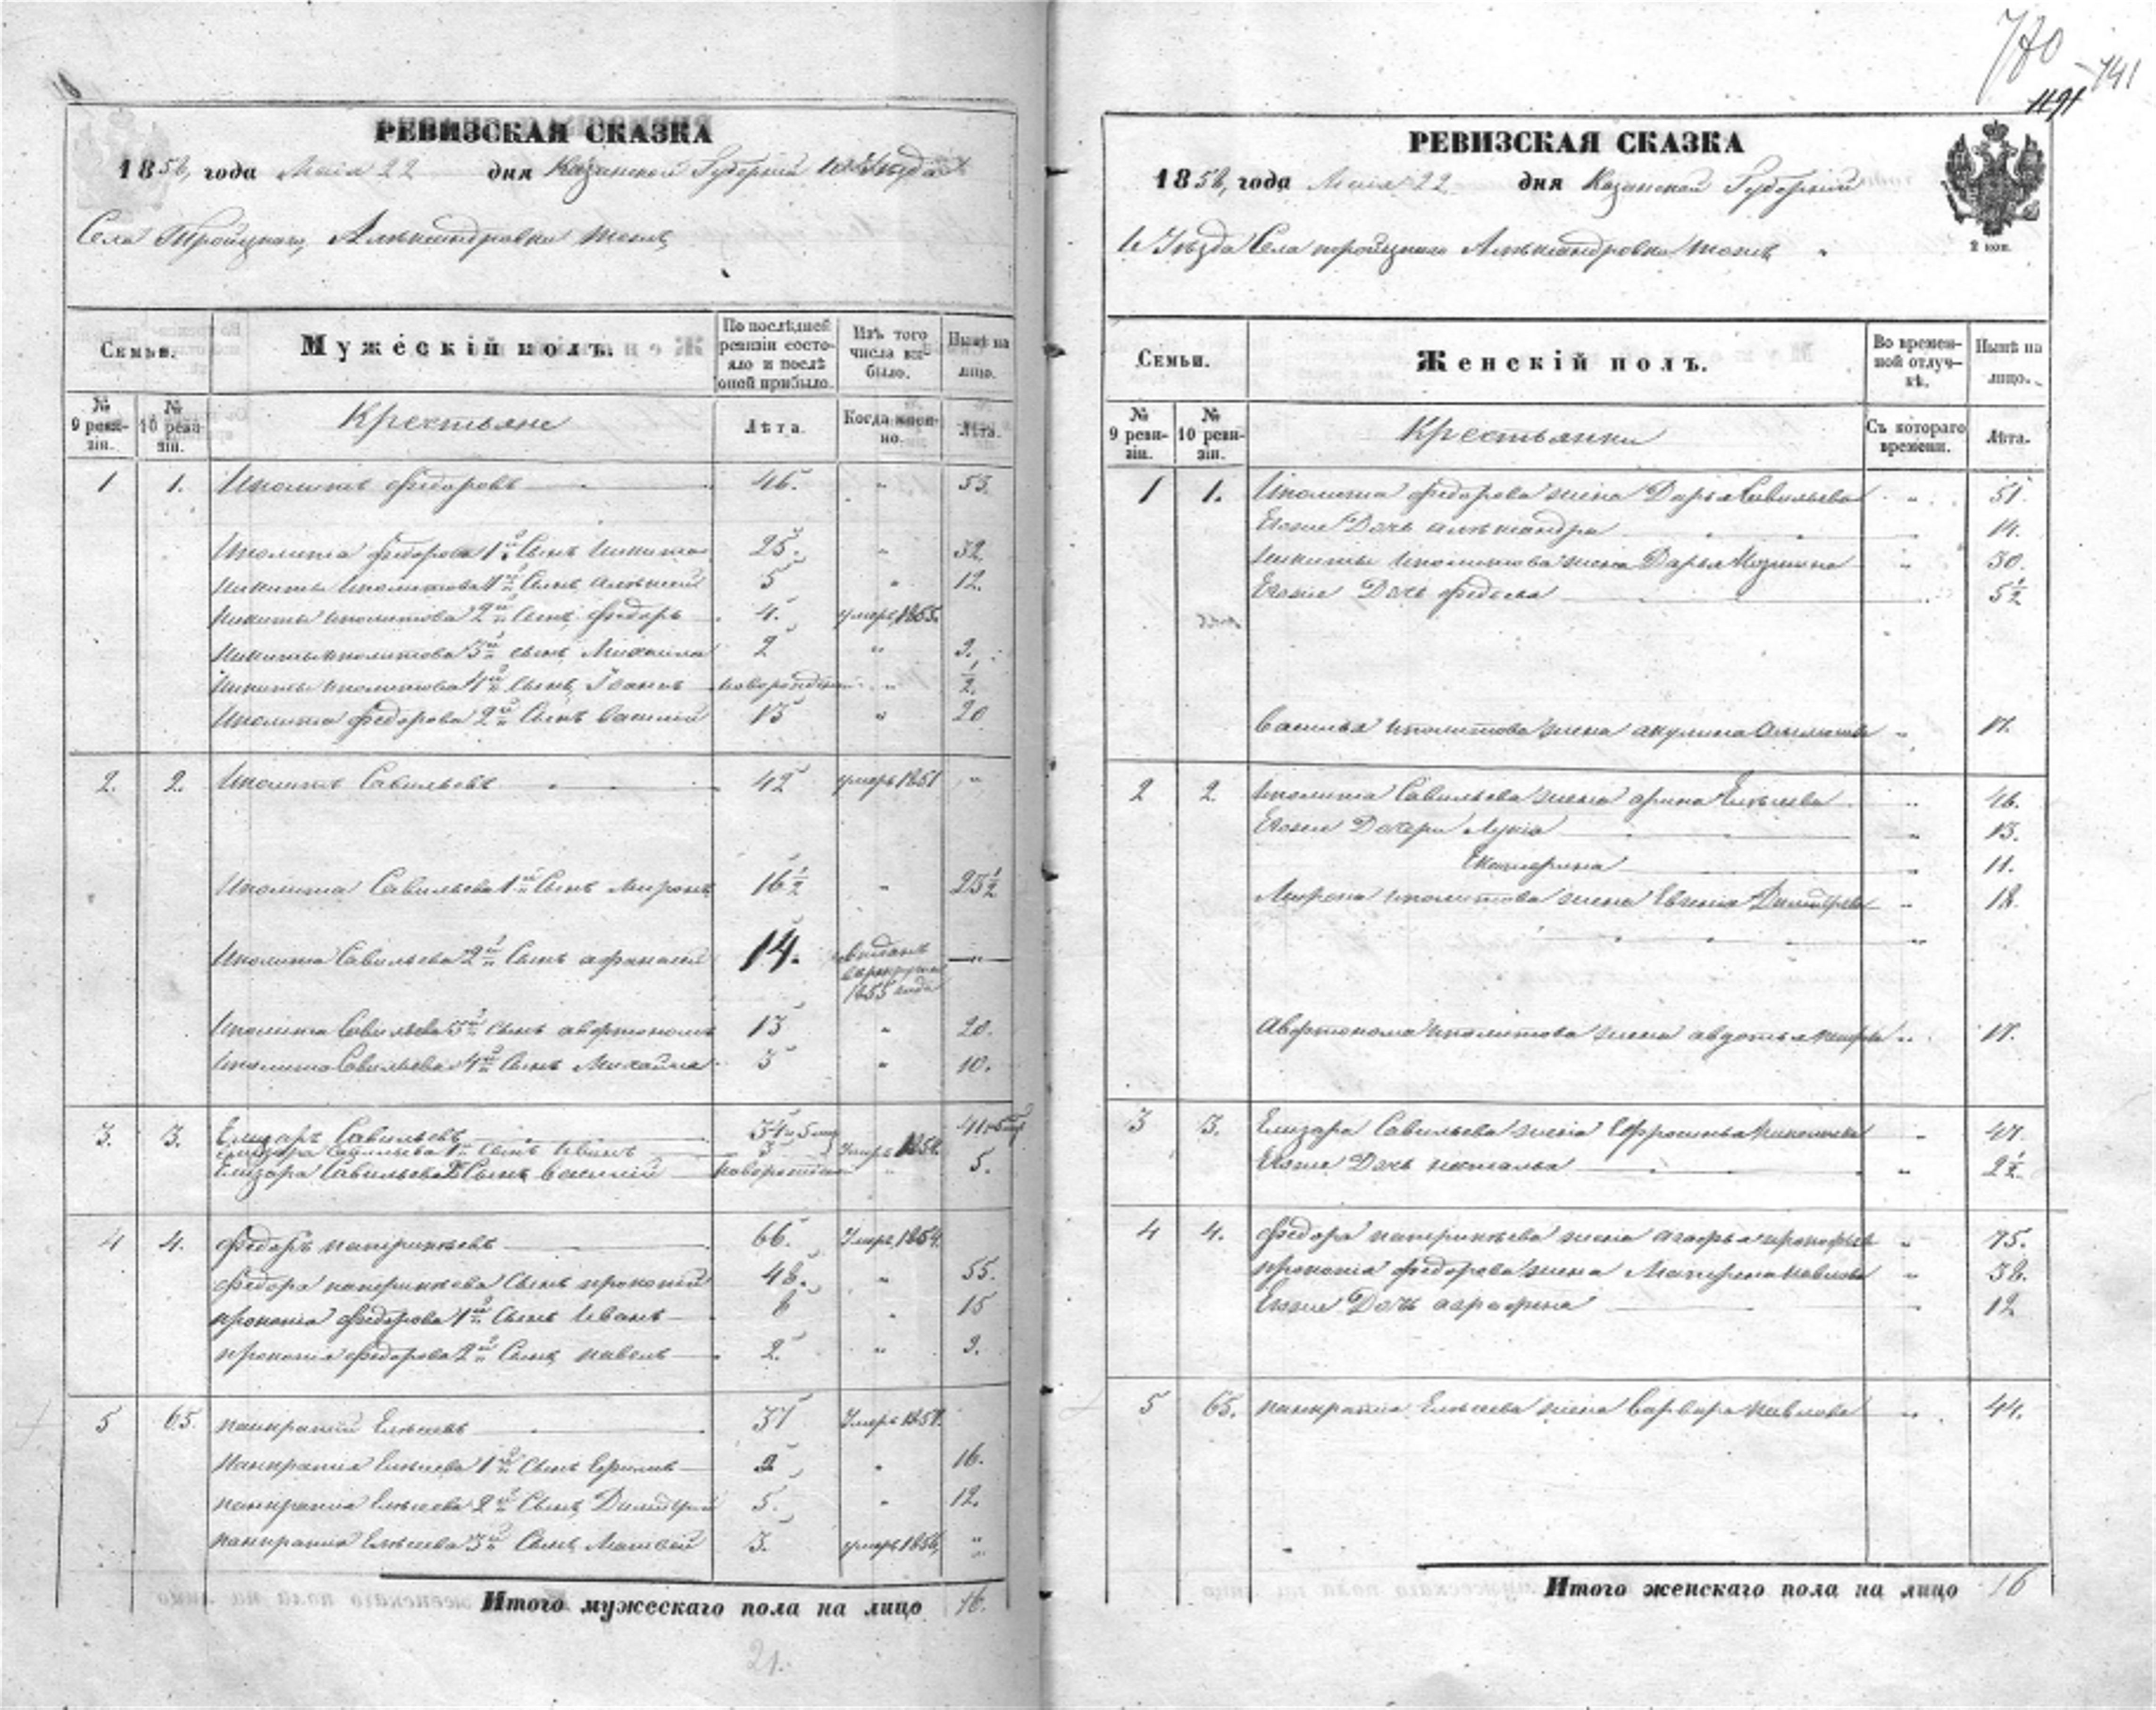 770
741
1191
РЕВИЗСКАЯ СКАЗКА
1858, года Маія 22 дня Казанской Губерніи Уѣзда
Села Тройцкаго, Алѣксандровка тожъ
Семьи.
Мужескій полъ.
По послѣдней ревизіи состояло и послѣ оной прибыло.
Изъ того числа выбыло.
Нынѣ на лицо.
№ 9 ревизіи.
№ 10 ревизіи.
Крестьяне
Лѣта.
Когда именно.
Лѣта.
1 1. Иполитъ Федоровъ 46. „ 53.
Иполита Федорова 1й Сынъ Никита 25. „ 32.
Никиты Иполитова 1й Сынъ Алѣксей 5 „ 12.
Никиты Иполитова 2й Сынъ Федоръ 4. умеръ 1855.
Никиты Иполитова 3й Сынъ Михайла 2 „ 9.
Никиты Иполитова 4й Сынъ Іванъ новорожденный „ ½.
Иполита Федорова 2й Сынъ Василій 13 „ 20
2. 2. Иполитъ Савельевъ 42 умеръ 1851 „
Иполита Савельева 1й Сынъ Миронъ 16½ „ 23½
Иполита Савельева 2й Сынъ Афанасей 14. 1855 года —
Иполита Савельева 3й Сынъ Авфтономъ 13 „ 20.
Иполита Савельева 4й Сынъ Михайла 3 „ 10.
3. 3. Елизаръ Савельевъ 34
Елизара Савельева 1й Сынъ Иванъ 3 Умеръ 1854.
Елизара Савельева 2й Сынъ Василій новорожден „ 5.
4 4. Федоръ патрикѣевъ 66. Умеръ 1854.
Федора патрикѣева Сынъ прокопій 48. „ 55.
прокопія Федорова 1й Сынъ Иванъ 8 „ 15
прокопія Федорова 2й Сынъ павелъ 2. „ 9.
5 65. панкратій Елѣсѣевъ 37 Умеръ
Панкратія Елѣсѣева 1й Сынъ Ефимъ „ 16.
панкратія Елѣсѣева 2й Сынъ Димитрій 5. „ 12.
панкратія Елѣсѣева 3й Сынъ Матвей 3. умеръ 1856, „
Итого мужескаго пола на лицо 16.
21.
РЕВИЗСКАЯ СКАЗКА
1858, года Маія 22 дня Казанской Губерніи
Уѣзда Села тройцкаго Алѣксандровка тожъ
2 коп.
Семьи.
Женскій полъ.
Во временной отлучкѣ.
Нынѣ на лицо.
№ 9 ревизіи.
№ 10 ревизіи.
Крестьянки
Съ котораго времени.
Лѣта.
1 1. Иполита Федорова жена Дарья Савельева „ 51.
Егоже Дочь алѣксандра 14.
Никиты Иполитова жена Дарья „ 30.
Егоже Дочь Федосья 5½
Василья Иполитова жена акулина „ 17.
2 2. Иполита Савельева жена арина Елѣсѣева „ 46.
Егоже Дочери Лукія „ 13.
Екатерина „ 11.
Мирона Иполитова жена Евгенія „ 18.
Авфтонома Иполитова жена авдотья „ 17.
3 3. Елизара Савельева жена Ефросинья „ 47.
Егоже Дочь наталья „ 2½
4 4. Федора патрикѣева жена агафья прокофьева „ 75.
прокопія Федорова жена Матрена „ 38.
Егоже Дочь аграфена 12
5 65. панкратія Елѣсѣева жена Варвара павлова „ 44.
Итого женскаго пола на лицо 16